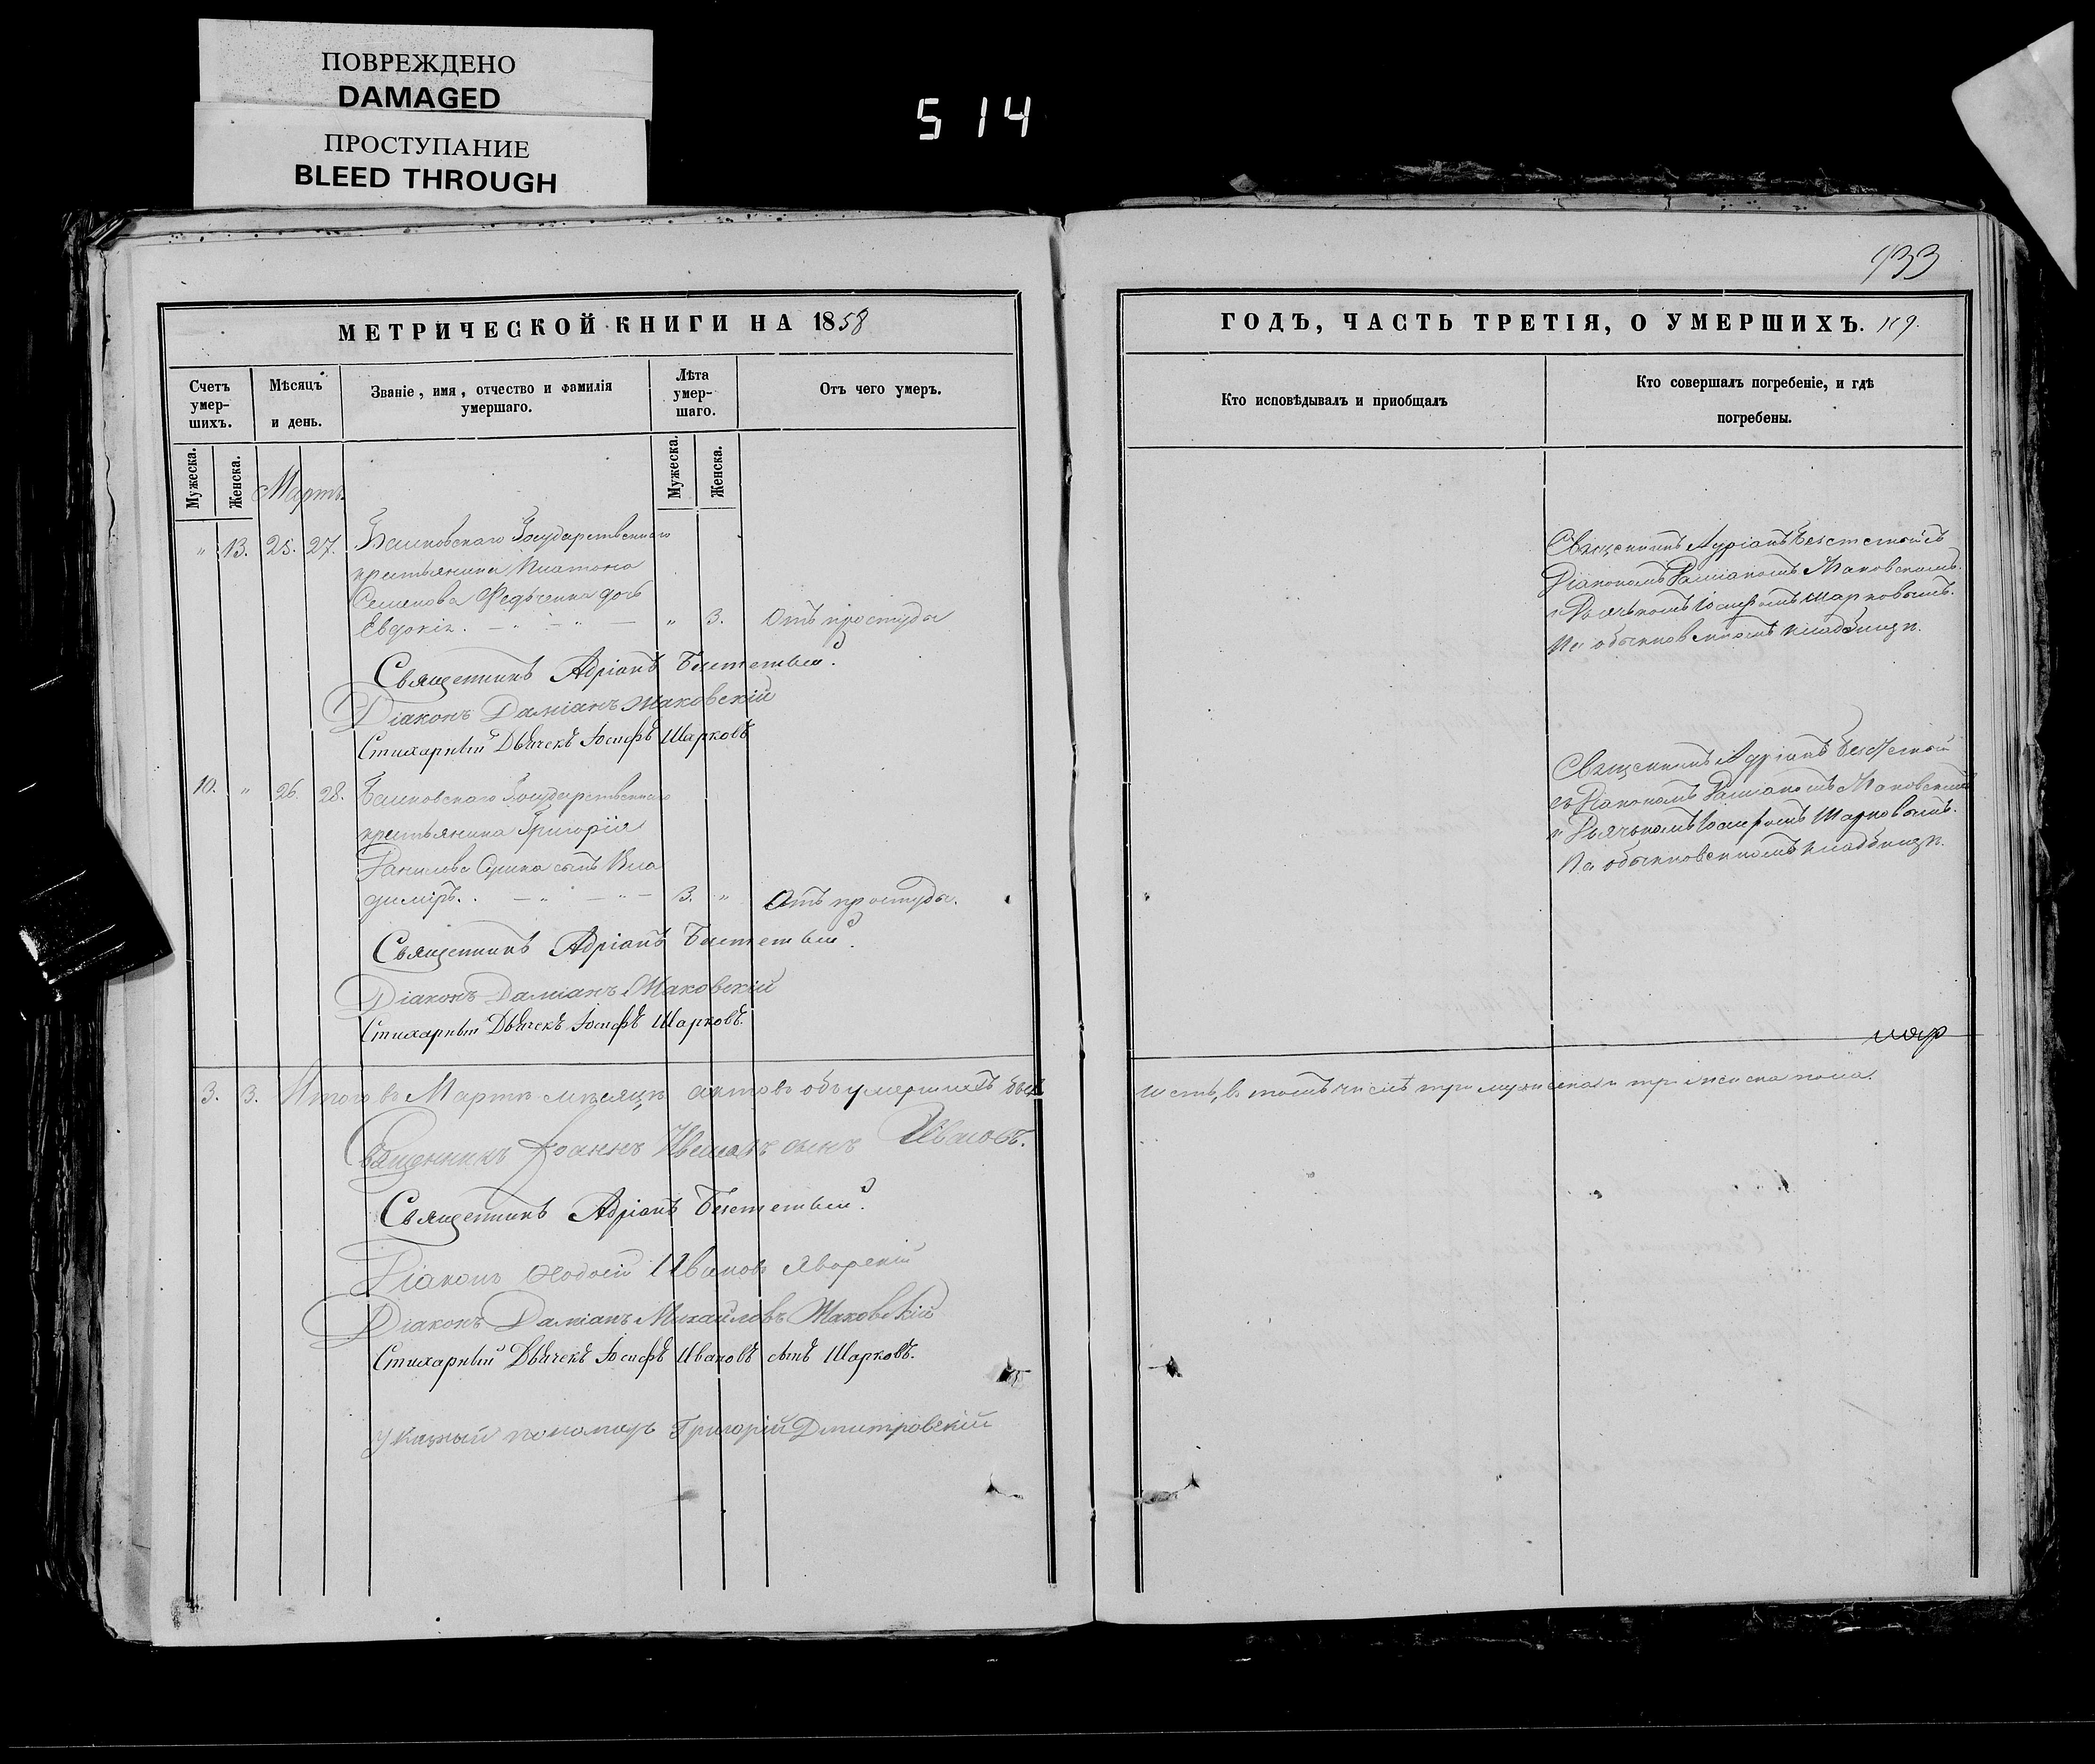 ПОВРЕЖДЕНО
DAMAGED
ПРОСТУПАНИЕ
BLEED THROUGH
514
933
МЕТРИЧЕСКОЙ КНИГИ НА 1858
Счетъ умер-шихъ.
Мѣсяцъ и день.
Званіе, имя, отчество и фамилія умершаго.
Лѣта умер-шаго.
Отъ чего умеръ.
Мужеска.
Женска.
Мужеска.
Женска.
Мартъ
" 13. 25. 27. Государственнаго
крестьянина Платона
Семенова Федченка дочь
Евдокія. " 3. Отъ простуды
Священникъ Адріанъ
Діаконъ Даміанъ Маковскій
Стихарный Дьячекъ Іосифъ Шарковъ
10. " 26. 28. Государственнаго
крестьянина Григорія
Данилова сынъ Вла
диміръ. 3. " Отъ простуды.
Священникъ Адріанъ
Діаконъ Даміанъ Маковскій
Стихарный Дьячекъ Іосифъ Шарковъ.
3. 3. Итого въ Мартѣ мѣсяцѣ актовъ объ умершихъ
Священникъ Іоаннъ сынъ Ивановъ.
Священникъ Адріанъ
Діаконъ Ивановъ Яворскій
Діаконъ Даміанъ Михайловъ Маковскій
Стихарный Дьячекъ Іосифъ Ивановъ сынъ Шарковъ.
Указный пономарь Григорій Дмитровскій
ГОДЪ, ЧАСТЬ ТРЕТІЯ, О УМЕРШИХЪ. 119.
Кто исповѣдывалъ и приобщалъ
Кто совершалъ погребеніе, и гдѣ
погребены.
Священникъ съ
Діакономъ Даміаномъ Маковскимъ
и Дьячкомъ Іосифомъ Шарковымъ.
На обыкновенномъ кладбищѣ.
Священникъ Адріанъ
съ Діакономъ Даміаномъ Маковскимъ
и Дьячкомъ Іосифомъ Шарковымъ.
На обыкновенномъ кладбищѣ.
шесть, въ томъ числѣ три мужеска и три женска пола.